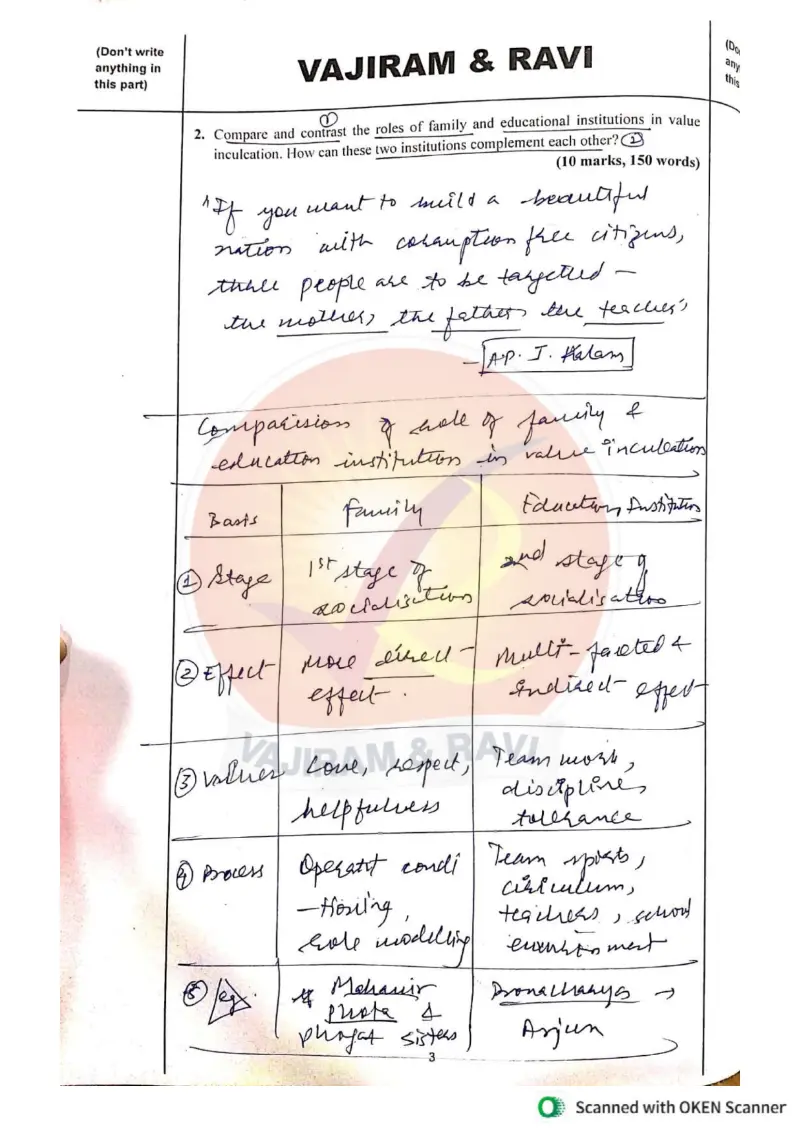 (Don't write
anything in
this part)
VAJIRAM & RAVI
(Do
any
this
①
2. Compare and contrast the roles of family and educational institutions in value
inculcation. How can these two institutions complement each other? ②
(10 marks, 150 words)
"If you want to build a beautiful
nation with corruption free citizens,
three people are to be targetted –
the mother, the father, the teacher"
– A.P. J. Kalam
Comparision of role of family &
education institution in value inculcation
Basis Family Education Institution
① Stage 1st stage of socialisation 2nd stage of socialisation
② Effect More direct effect. Multi-faceted & indirect effect
③ Values Love, respect, helpfulness Team work, discipline, tolerance
④ Process Operant condi-tioning, role modelling Team sports, curriculum, teachers, school environment
⑤ eg. Mahavir & phogat sisters Dronacharya → Arjun
VAJIRAM & RAVI
3
Scanned with OKEN Scanner